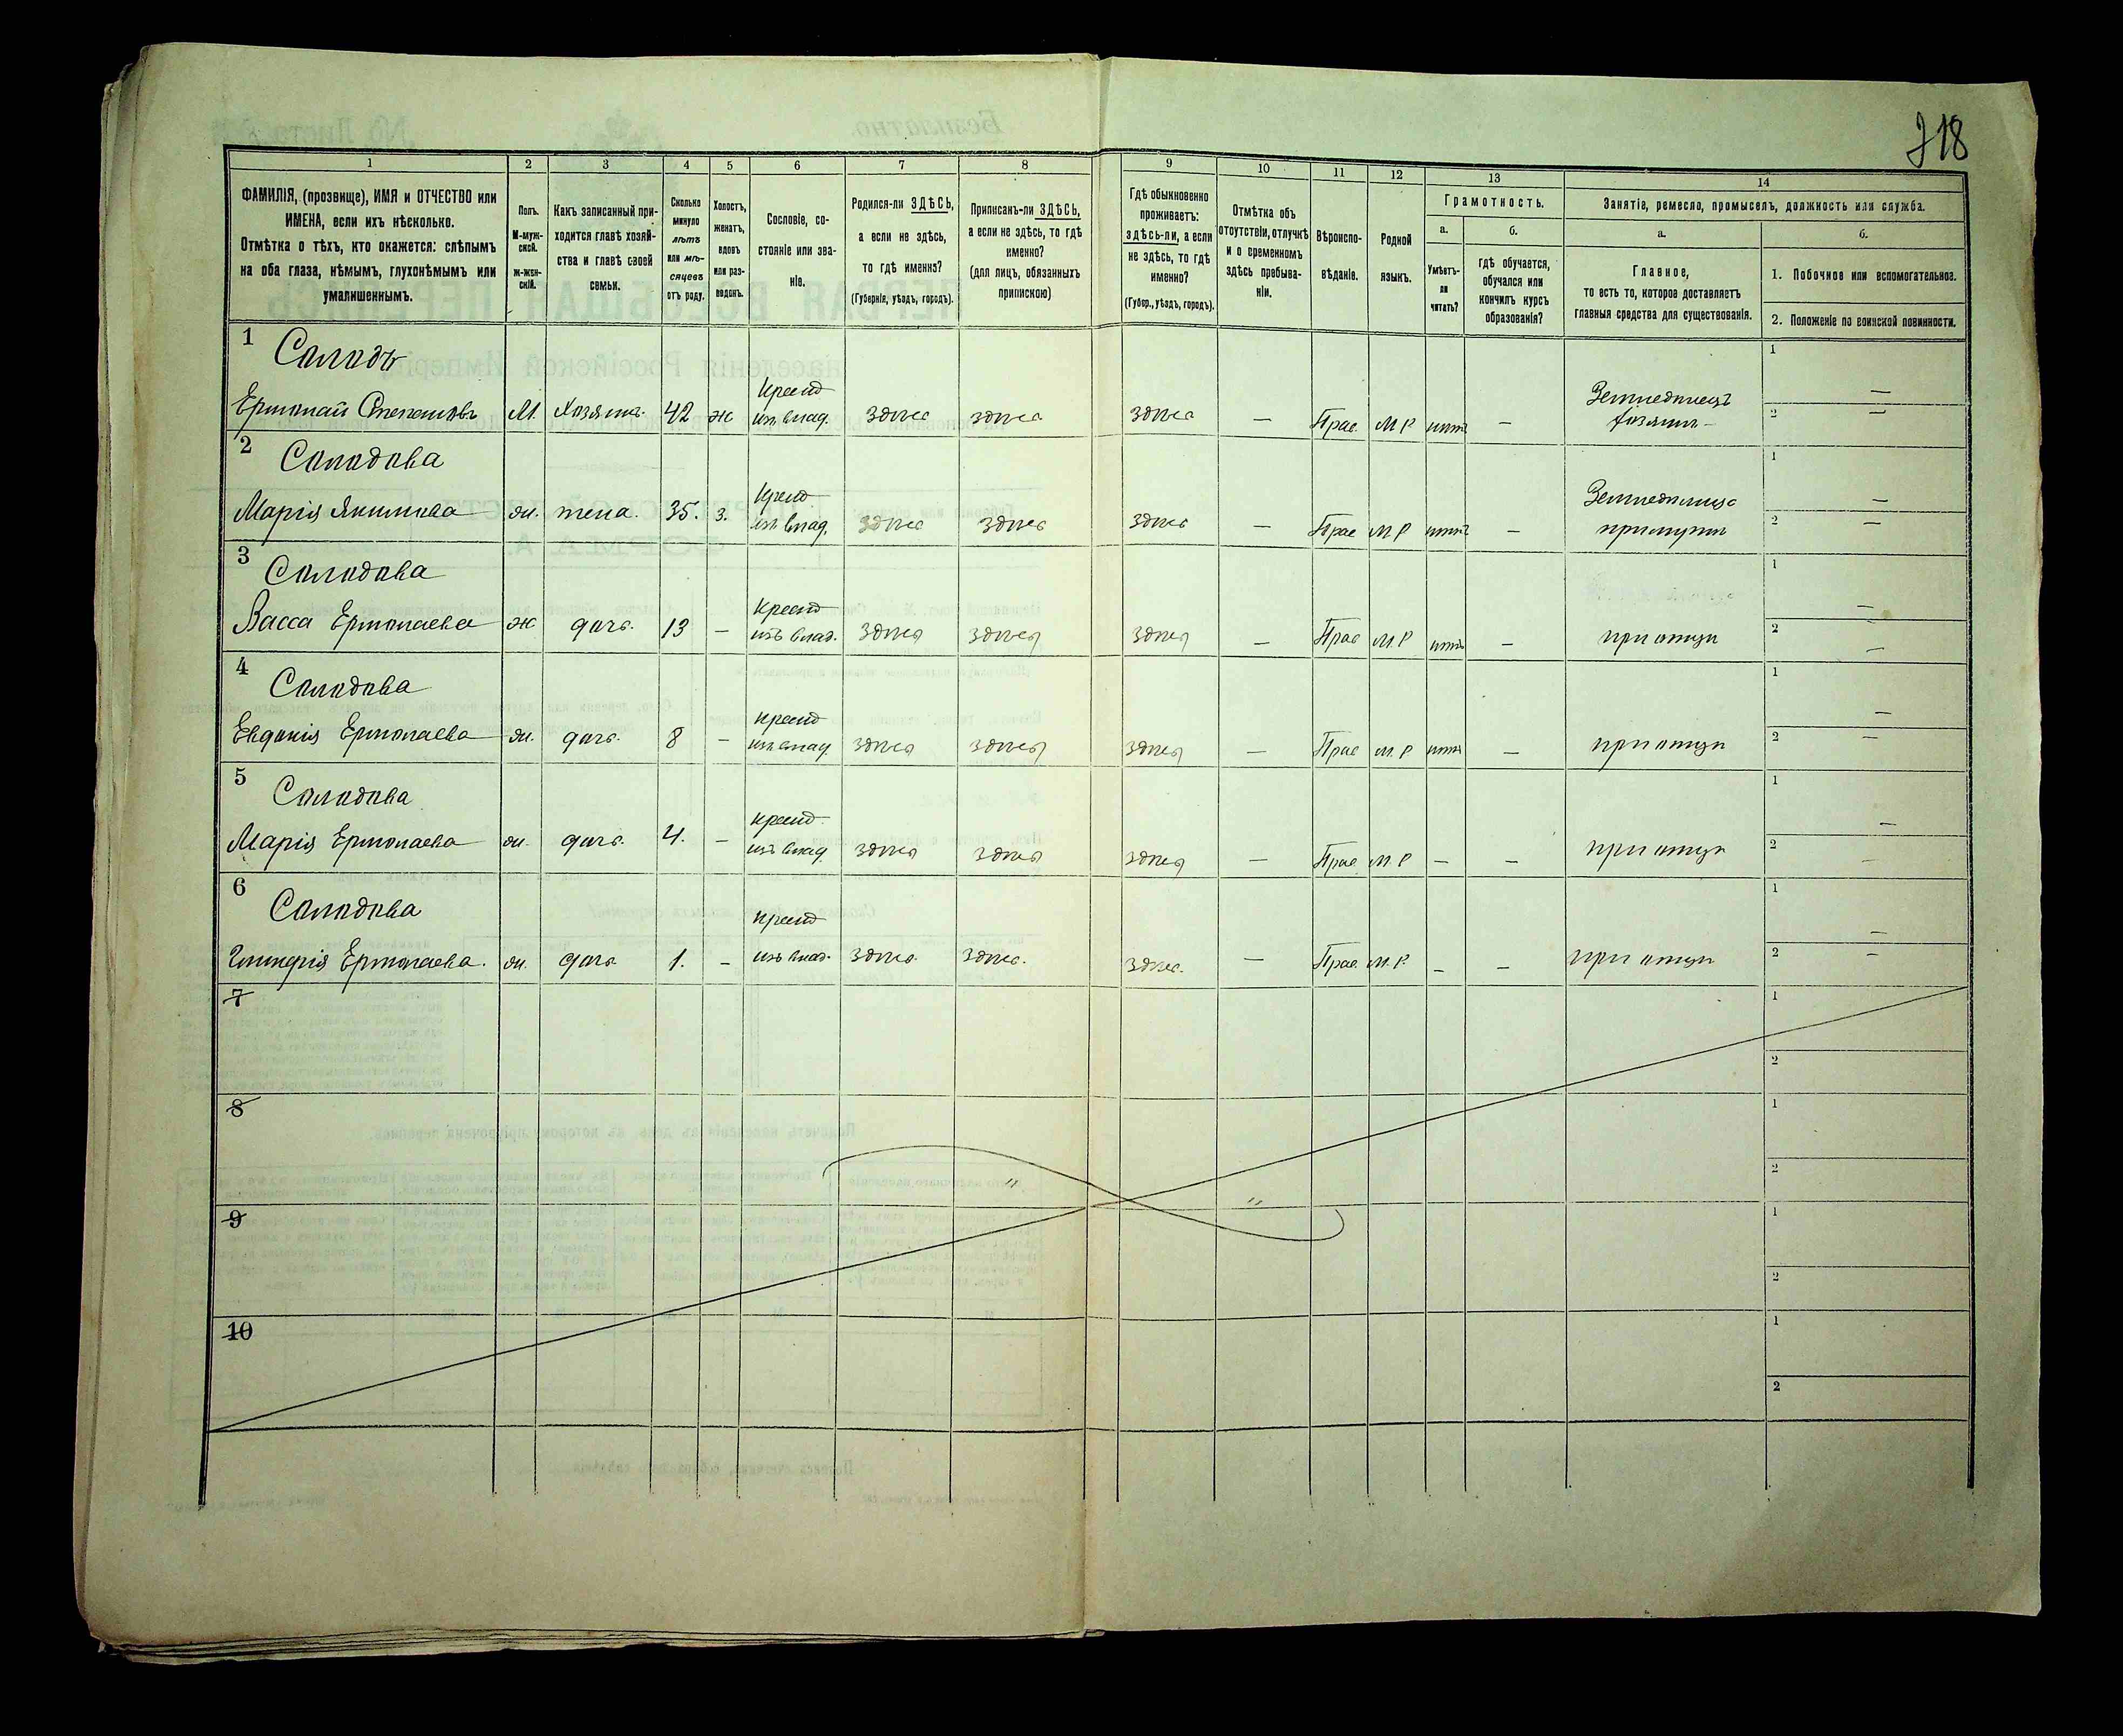 318
1 2 3 4 5 6 7 8 9 10 11 12 13 14
ФАМИЛІЯ, (прозвище), ИМЯ и ОТЧЕСТВО или ИМЕНА, если ихъ нѣсколько.
Отмѣтка о тѣхъ, кто окажется: слѣпымъ на оба глаза, нѣмымъ, глухонѣмымъ или умалишеннымъ.
Полъ. М-мужской. Ж-женскій.
Какъ записанный приходится главѣ хозяйства и главѣ своей семьи.
Сколько минуло лѣтъ или мѣсяцевъ отъ роду.
Холостъ, женатъ, вдовъ или разведенъ.
Сословіе, состояніе или званіе.
Родился-ли ЗДѢСЬ, а если не здѣсь, то гдѣ именно?
(Губернія, уѣздъ, городъ).
Приписанъ-ли ЗДѢСЬ, а если не здѣсь, то гдѣ именно?
(для лицъ, обязанныхъ припискою)
Гдѣ обыкновенно проживаетъ: здѣсь-ли, а если не здѣсь, то гдѣ именно?
(Губер., уѣздъ, городъ).
Отмѣтка объ отсутствіи, отлучкѣ и о временномъ здѣсь пребываніи.
Вѣроисповѣданіе.
Родной языкъ.
Грамотность.
а. б.
Умѣетъ-ли читать?
гдѣ обучается, обучался или кончилъ курсъ образованія?
Занятіе, ремесло, промыселъ, должность или служба.
а. б.
Главное, то есть то, которое доставляетъ главныя средства для существованія.
1. Побочное или вспомогательное.
2. Положеніе по воинской повинности.
1 Солодъ 1 —
Крест
Земледѣлецъ
Ермолай Степановъ М. Хозяинъ. 42 ж изъ влад. здѣсь здѣсь здѣсь — Прав. М Р нѣтъ — хозяинъ 2 —
2 Солодова 1 —
Крест
Марія Якимова ж. жена. 35. з. изъ влад. здѣсь здѣсь здѣсь — Прав М Р нѣтъ — при мужѣ 2 —
3 Солодова 1 —
Крест
Васса Ермолаева ж дочь. 13 — изъ влад. здѣсь здѣсь здѣсь — Прав М. Р нѣтъ — при отцѣ 2 —
4 Солодова 1 —
Крест
Евдокія Ермолаева ж. дочь. 8 — изъ влад здѣсь здѣсь здѣсь — Прав М. Р нѣтъ — при отцѣ 2 —
5 Солодова 1 —
Крест
Марія Ермолаева ж. дочь. 4. — изъ влад здѣсь здѣсь здѣсь — Прав М Р — — при отцѣ 2 —
6 Солодова 1 —
Крест
Гликерія Ермолаева. ж. дочь 1. — изъ влад. здѣсь здѣсь. здѣсь. — Прав. М. Р. — — при отцѣ 2 —
7 1
2
8 1
2
9 1
2
10 1
2